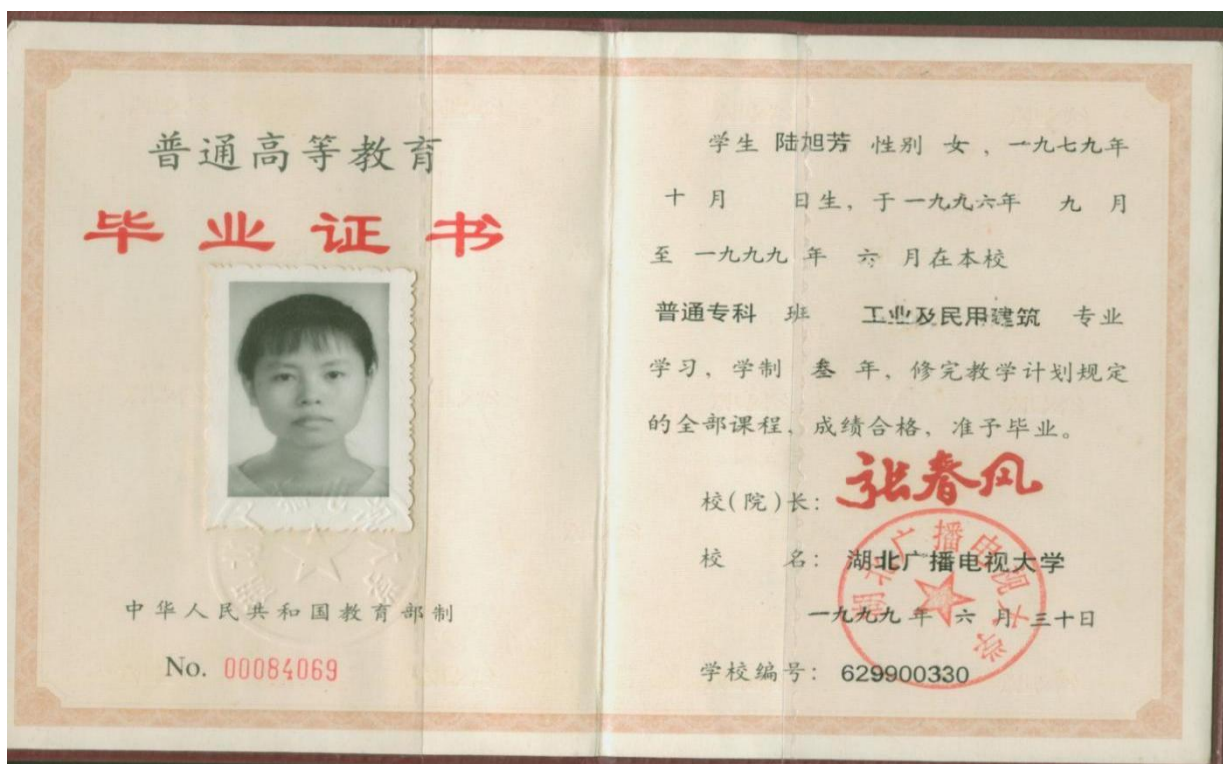 普通高等教育
毕业证书
中华人民共和国教育部制
No. 00084069
学生 陆旭芳 性别 女，一九七九年
十月 日生，于一九九六年 九月
至 一九九九 年 六 月在本校
普通专科 班 工业及民用建筑 专业
学习，学制 叁 年，修完教学计划规定
的全部课程，成绩合格，准予毕业。
校(院)长：张春风
校 名：湖北广播电视大学
一九九九年 六 月 三十日
学校编号：629900330
湖北广播电视大学